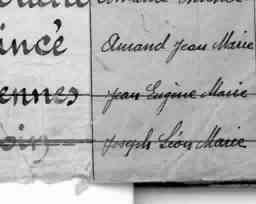 incé Amand Jean Marie
ennes Jean Eugène Marie
Joseph Léon Marie